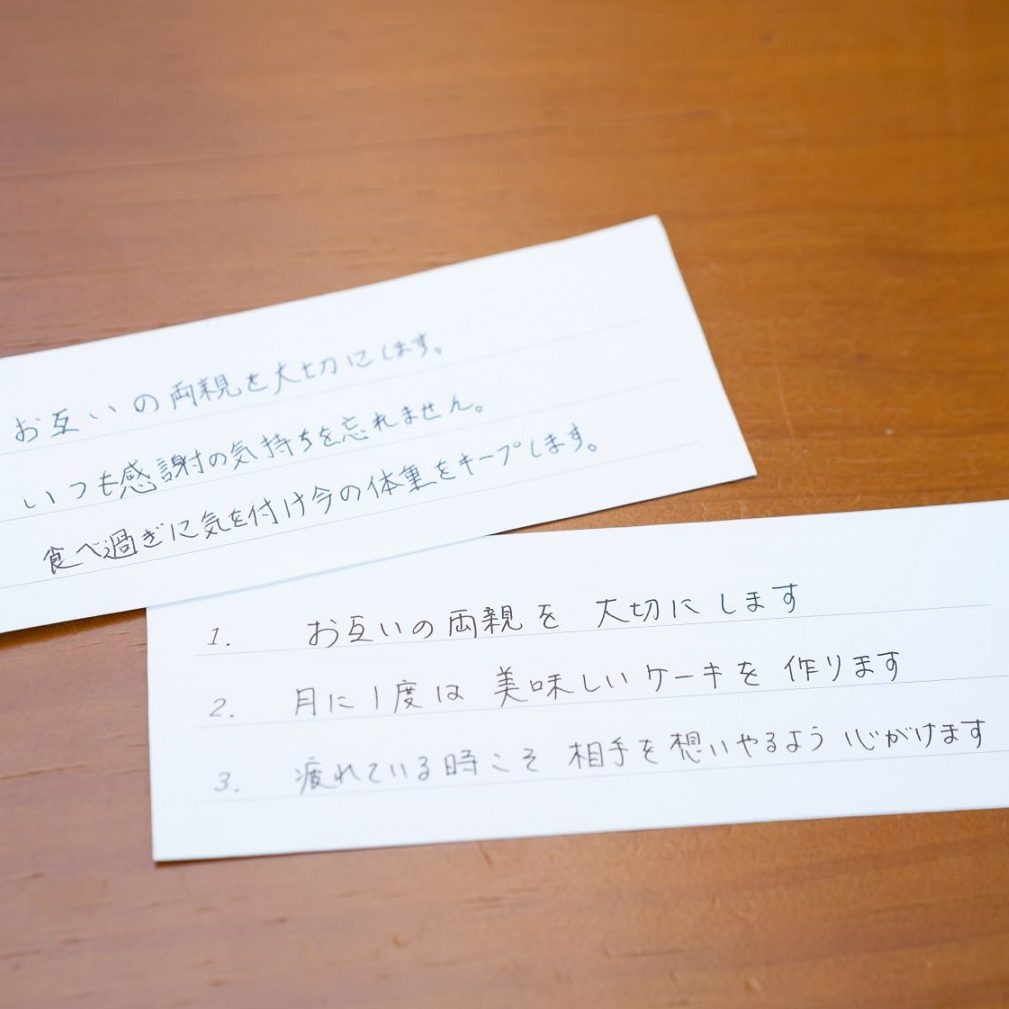 お互いの両親を大切にします。
いつも感謝の気持ちを忘れません。
食べ過ぎに気を付け今の体重をキープします。
1. お互いの両親を 大切にします
2. 月に1度は 美味しいケーキを 作ります
3. 疲れている時こそ 相手を想いやるよう 心がけます